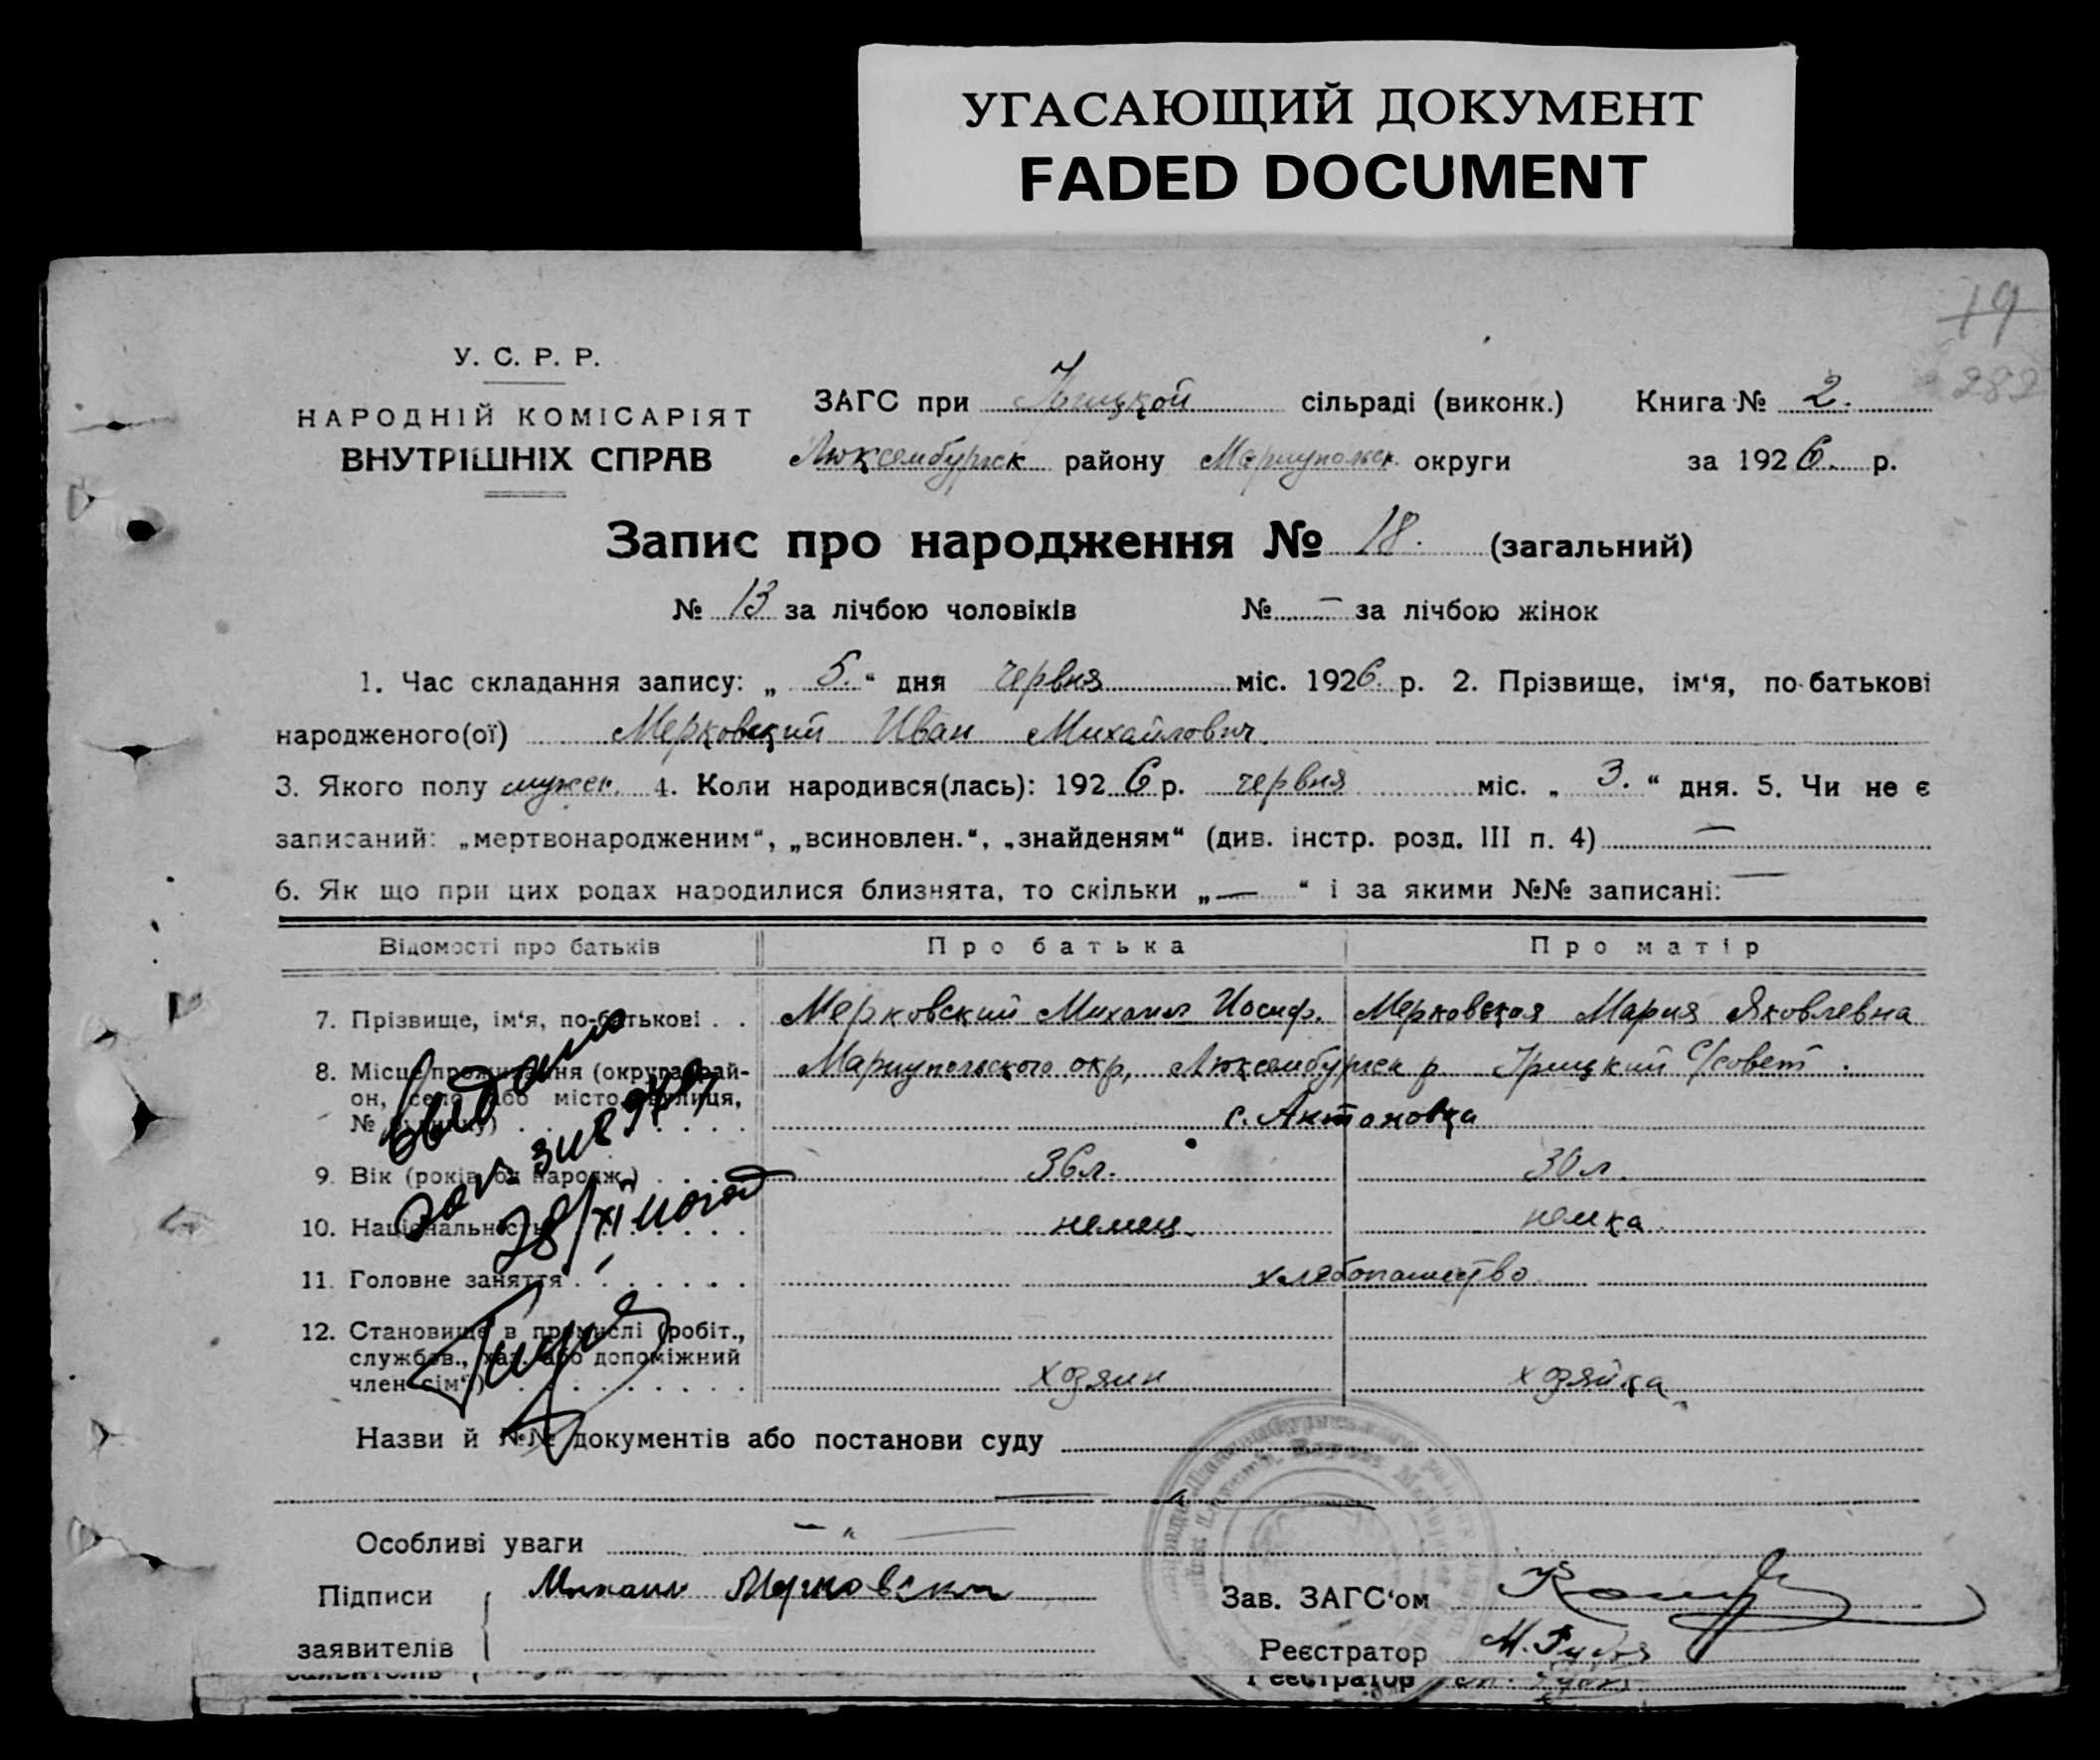 УГАСАЮЩИЙ ДОКУМЕНТ
FADED DOCUMENT
19
282
У. С. Р. Р.
НАРОДНІЙ КОМІСАРІЯТ
ВНУТРІШНІХ СПРАВ
ЗАГС при сільраді (виконк.) Книга № 2.
Люксембургск району Мариупольск. округи за 1926. р.
Запис про народження № 18. (загальний)
№ 13 за лічбою чоловіків № — за лічбою жінок
1. Час складання запису: „ 5. “ дня червня міс. 1926. р. 2. Прізвище, ім‘я, по-батькові
народженого(ої) Мерковский Иван Михайлович.
3. Якого полу мужск. 4. Коли народився(лась): 1926 р. червня міс. „ 3. “ дня. 5. Чи не є
записаний: „мертвонародженим“, „всиновлен.“, „знайденям“ (див. інстр. розд. III п. 4) —
6. Як що при цих родах народилися близнята, то скільки „ — “ і за якими №№ записані: —
Відомості про батьків Про батька Про матір
7. Прізвище, ім‘я, по-батькові . . Мерковский Михаил Иосиф. Мерковская Мария Яковлевна
8. Місце проживання (округа, рай- Мариупольского окр, Люксембургск р Урицкий с/совет.
он, село або місто, вулиця,
№ будинку) с. Антановка
9. Вік (років од народж.) 36 л. 30 л.
10. Національність немец. немка.
11. Головне заняття хлебопашество
12. Становище в промислі (робіт.,
службов., хаз. або допоміжний
член сім‘ї) хозяин хозяйка
выдано
28/XI
Назви й №№ документів або постанови суду
— „ —
Особливі уваги — „ —
Підписи Михаил Мерковски Зав. ЗАГС‘ом
заявителів Реєстратор М.
заявителів Реєстратор